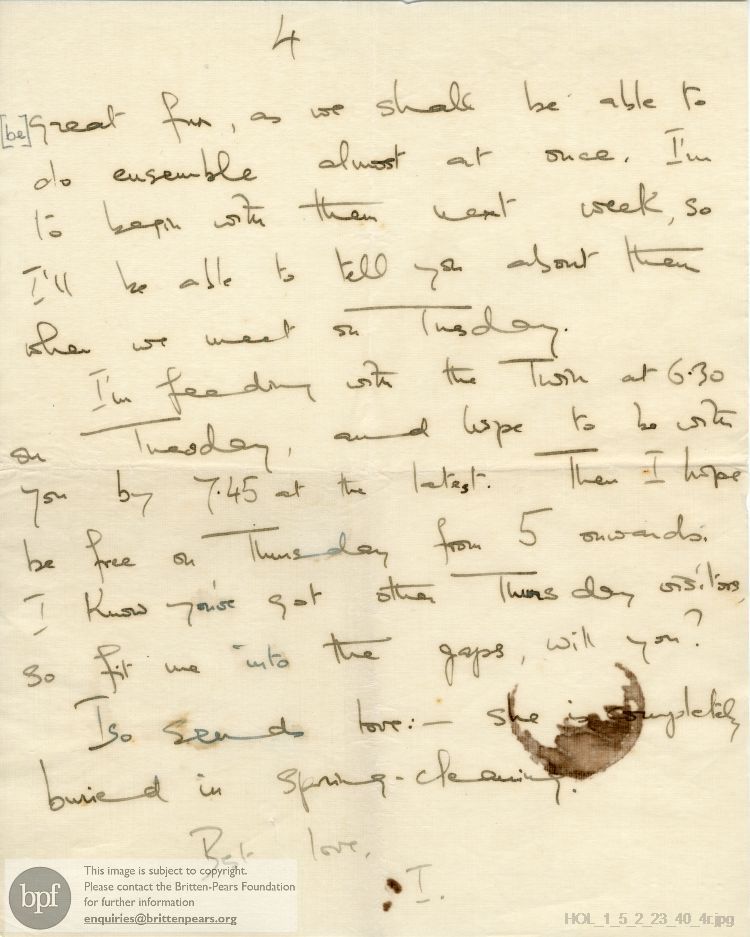 4
[be] great fun, as we shall be able to
do ensemble almost at once. I'm
to begin with them next week, so
I'll be able to tell you about them
when we meet on Tuesday.
I'm feeding with the Twin at 6.30
on Tuesday, and hope to be with
you by 7.45 at the latest. Then I hope
be free on Thursday from 5 onwards.
I know you've got other Thursday visitors,
so fit me into the gaps, will you?
Iso sends love:— she is completely
buried in spring-cleaning.
Best love,
I.
bpf
This image is subject to copyright.
Please contact the Britten-Pears Foundation
for further information
enquiries@brittenpears.org
HOL_1_5_2_23_40_4r.jpg